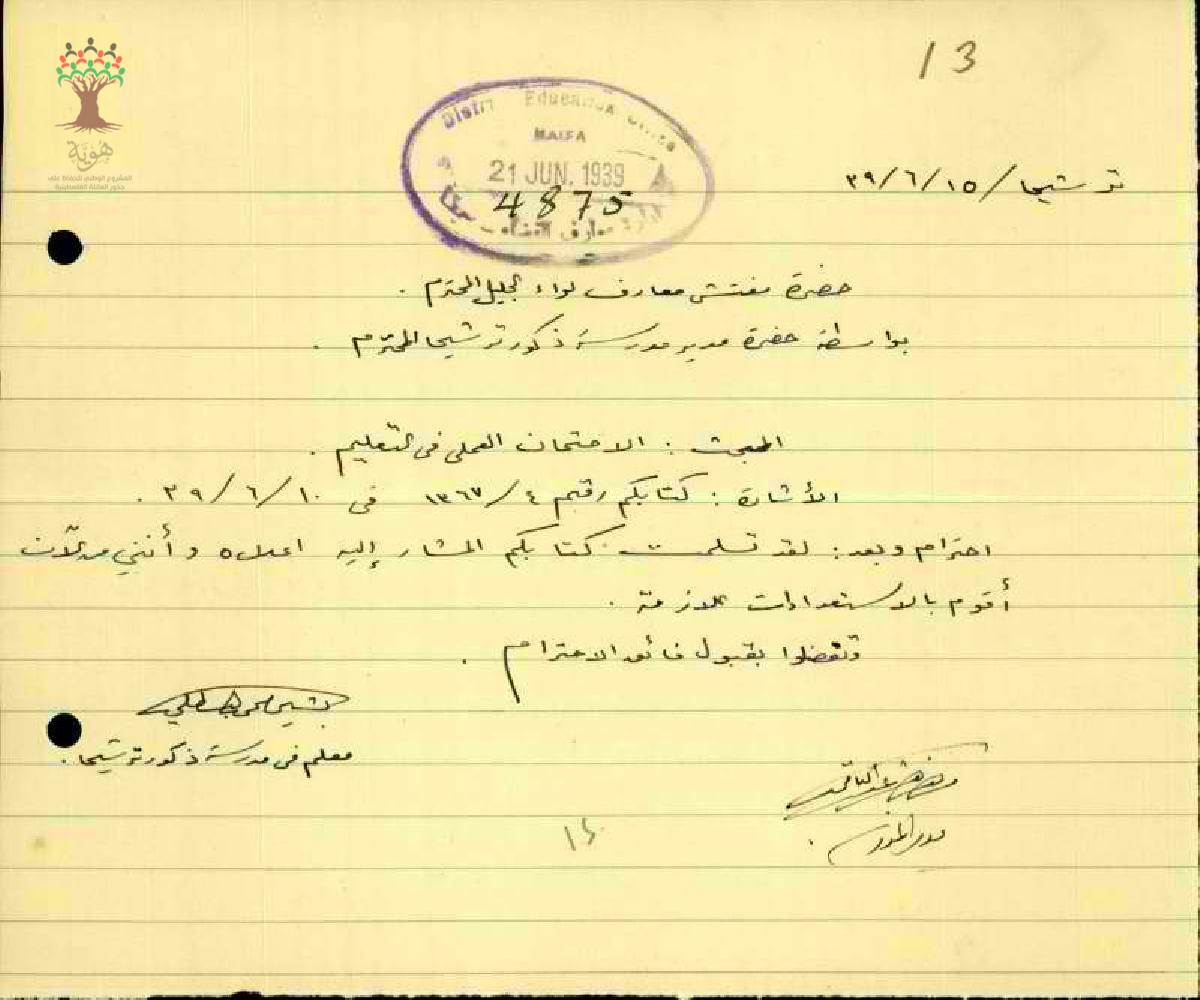 13
هوية
المشروع الوطني للحفاظ على
جذور العائلة الفلسطينية
Education
HAIFA
21 JUN. 1939
4875
معارف
ترشيحا / ١٥ / ٦ / ٣٩
حضرة مفتش معارف لواء الجليل المحترم .
بواسطة حضرة مدير مدرسة ذكور ترشيحا المحترم .
المبحث : الامتحان العملي في التعليم .
الأشارة : كتابكم رقم ٤ / ١٣٦٧ في ١٠ / ٦ / ٣٩ .
احترام وبعد : لقد تسلمت كتابكم المشار إليه اعلاه وأنني من الآن
أقوم بالاستعدادات اللازمة .
وتفضلوا بقبول فائق الاحترام .
معلم في مدرسة ذكور ترشيحا .
مدير المدرسة